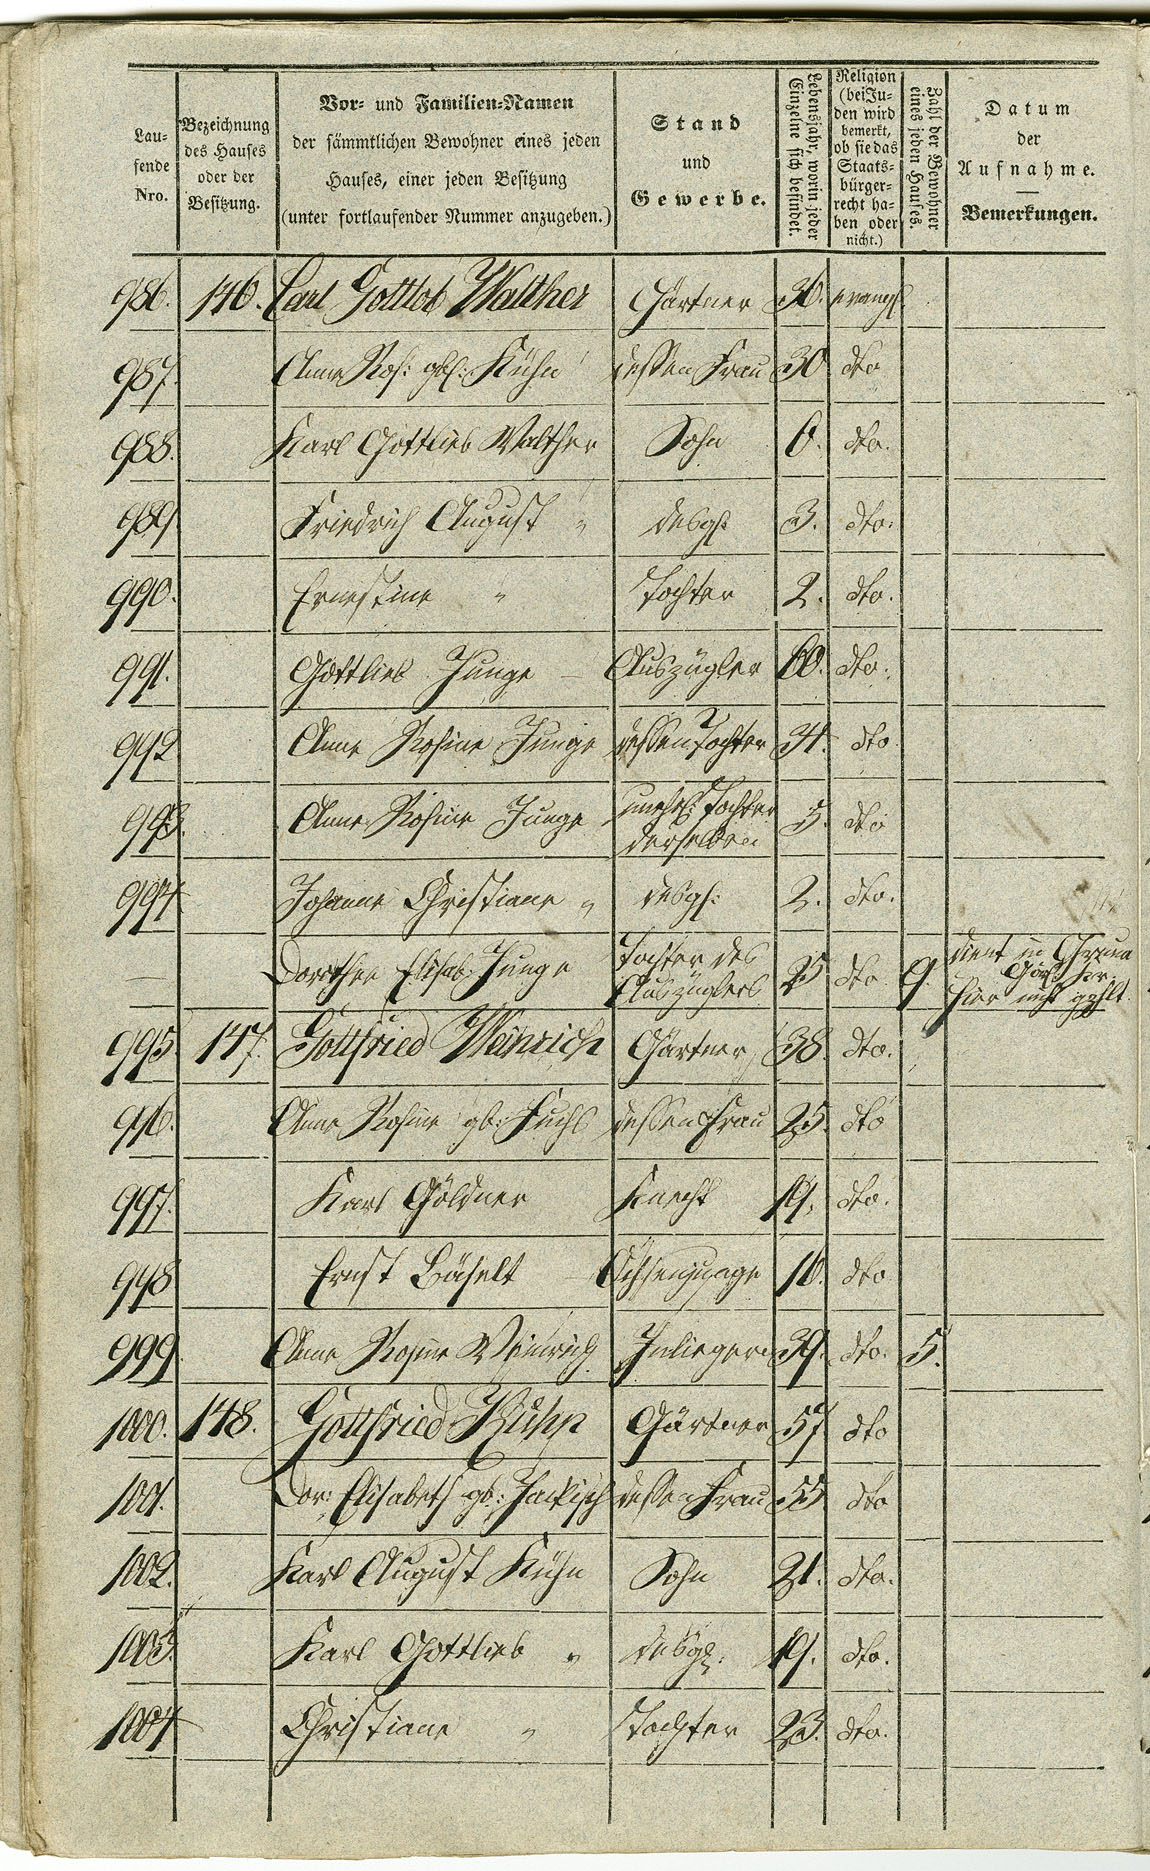 Lau-
fende
Nro.
Bezeichnung
des Hauses
oder der
Besitzung.
Vor- und Familien-Namen
der sämmtlichen Bewohner eines jeden
Hauses, einer jeden Besitzung
(unter fortlaufender Nummer anzugeben.)
Stand
und
Gewerbe.
Lebensjahr, worin jeder
Einzelne sich befindet.
Religion
(bei Ju-
den wird
bemerkt,
ob sie das
Staats-
bürger-
recht ha-
ben oder
nicht.)
Zahl der Bewohner
eines jeden Hauses.
Datum
der
Aufnahme.
Bemerkungen.
986. 146. Carl Gottlob Walther Gärtner 36. evangl.
987. Anne Ros: gb: Kühn dessen Frau 30 dto
988. Karl Gottlieb Walther Sohn 6. dto.
989 Friedrich August " desgl: 3. dto.
990. Ernestine " Tochter 2. dto.
991. Gottlieb Junge Auszügler 60. dto.
992 Anne Rosine Junge dessen Tochter 34. dto
993. Anne Rosine Junge unehel: Tochter derselben 5. dto
994 Johanne Christiane " desgl: 2. dto.
— Dorothee Elisab: Junge Tochter des Auszüglers 25 dto 9. dient in
hier nicht gezhlt.
995 147. Gottfried Weinrich Gärtner 38. dto.
996. Anne Rosine gb: Fuchs dessen Frau 25. dto
997. Karl Göldner Knecht 19. dto.
998 Ernst Bäselt Ochsenjunge 16. dto
999 Anne Rosine Weinrich Inliegerin 39. dto. 5.
1000. 148. Gottfried Kühn Gärtner 57 dto
1001. Dor: Elisabeth gb: Jackisch dessen Frau 55 dto
1002. Karl August Kühn Sohn 21. dto.
1003. Karl Gottlieb " desgl. 19. dto.
1004 Christiane " Tochter 23. dto.